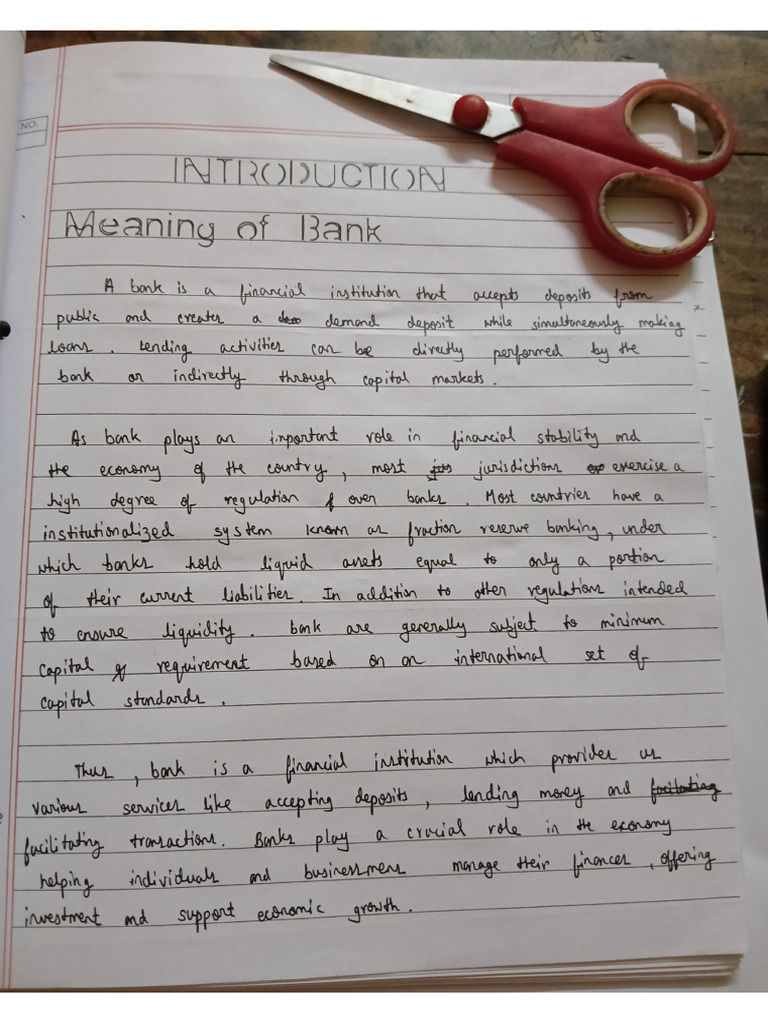 NO.
INTRODUCTION
Meaning of Bank
A bank is a financial institution that accepts deposits from
public and creates a demand deposit while simultaneously making
loans. Lending activities can be directly performed by the
bank or indirectly through capital markets.
As bank plays an important role in financial stability and
the economy of the country, most jurisdictions exercise a
high degree of regulation over banks. Most countries have a
institutionalized system known as fraction reserve banking, under
which banks hold liquid assets equal to only a portion
of their current liabilities. In addition to other regulations intended
to ensure liquidity. bank are generally subject to minimum
capital requirement based on an international set of
capital standards.
Thus, bank is a financial institution which provides us
various services like accepting deposits, lending money and facilitating
facilitating transactions. Banks play a crucial role in the economy
helping individuals and businessmens manage their finances, offering
investment and support economic growth.